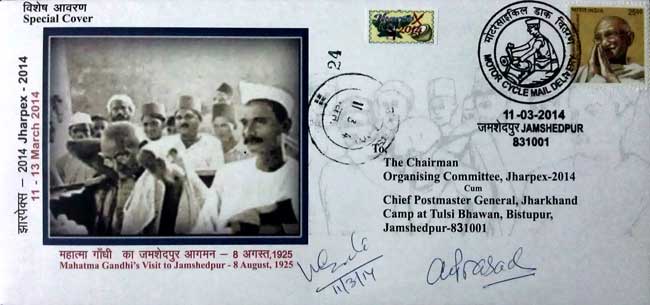 विशेष आवरण
Special Cover
झारपेक्स – 2014 Jharpex - 2014
11 - 13 March 2014
महात्मा गाँधी का जमशेदपुर आगमन – 8 अगस्त,1925
Mahatma Gandhi's Visit to Jamshedpur - 8 August, 1925
2014
24
11 3
मोटरसाइकिल डाक वितरण
MOTOR CYCLE MAIL DELIVERY
भारत INDIA
2500
11-03-2014
जमशेदपुर JAMSHEDPUR
831001
To,
The Chairman
Organising Committee, Jharpex-2014
Cum
Chief Postmaster General, Jharkhand
Camp at Tulsi Bhawan, Bistupur,
Jamshedpur-831001
11/3/14